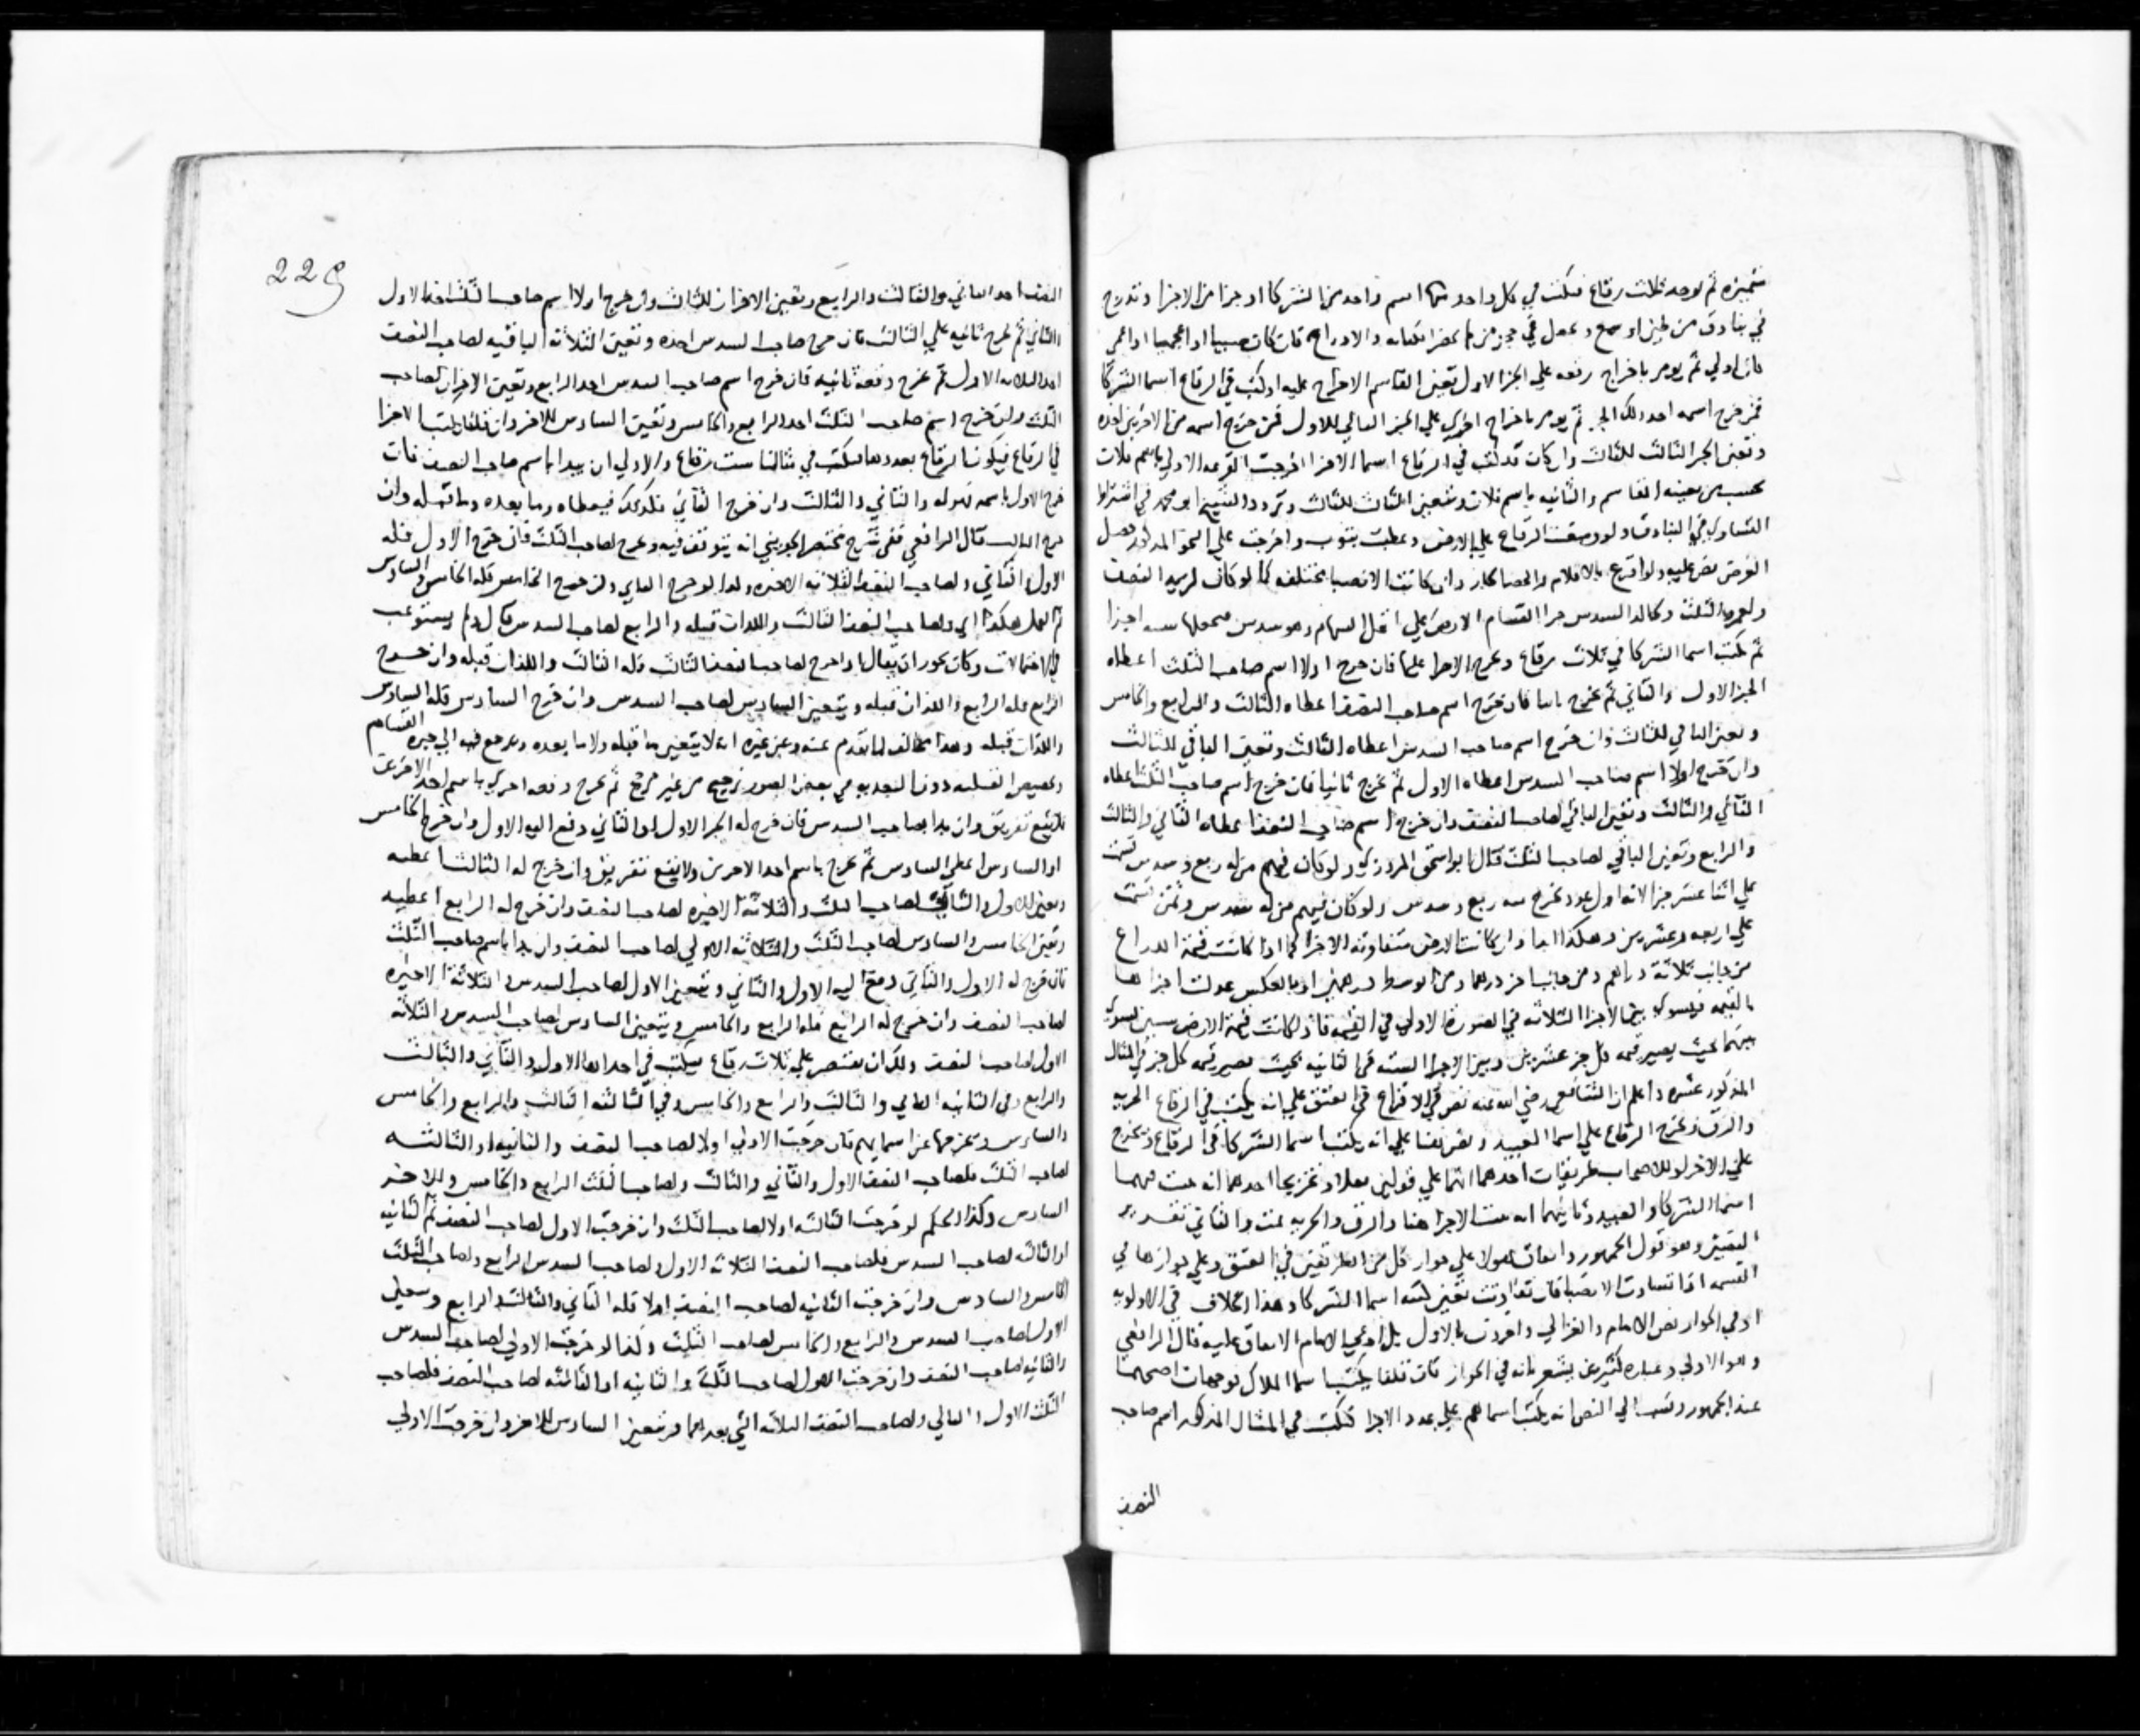 ثم يوخذ ثلاث رقاع فيكتب في كل واحد منها اسم واحد من الشركا او جزا من الاجزا وتدرج
في بنادق من طين او شمع وتجعل في حجر من لم يحضر الكتابه والادراج فان كان صبيا او اعجميا او اعمي
كان اولي ثم يومر باخراج رقعه علي الجزا الاول تعين القاسم الاخراج عليه ان كتب في الرقاع اسما الشركا
فمن خرج اسمه اخذ ذلك الجز ثم يومر باخراج اخري علي الجز التالي للاول فمن خرج اسمه من الاخرين اخذه
وتعين الجز الثالث للثالث وان كان قد كتب في الرقاع اسما الاجزا اخرجت الرقعه الاولي باسم فلان
بحسب من يعينه القاسم والثانيه باسم فلان وتعين الثالث للثالث وتردد الشيخ ابو محمد في اشتراط
التساوي في البنادق ولو وضعت الرقاع علي الارض وغطيت بثوب واخرجت علي النحو المذكور حصل
الغرض نص عليه ولو اقرع بالاقلام والحصا جاز وان كانت الانصبا مختلفه كما لو كان لزيد النصف
ولعمرو الثلث ولخالد السدس جزا القسام الارض علي اقل السهام وهو سدس فيجعلها سته اجزا
ثم يكتب اسما الشركا في ثلاث رقاع وتخرج الاجزا عليها فان خرج اولا اسم صاحب الثلث اعطاه
الجز الاول والثاني ثم تخرج ثانيا فان خرج اسم صاحب النصف اعطاه الثالث والرابع والخامس
وتعين الباقي للثالث وان خرج اسم صاحب السدس اعطاه الثالث وتعين الباقي للثالث
وان خرج اولا اسم صاحب السدس اعطاه الاول ثم تخرج ثانيا فان خرج اسم صاحب الثلث اعطاه
الثاني والثالث وتعين الباقي لصاحب النصف وان خرج اسم صاحب النصف اعطاه الثاني والثالث
والرابع وتعين الباقي لصاحب الثلث قال ابو اسحق المروزي ولو كان فيهم من له ربع وسدس قسمت
علي اثنا عشر جزا لانه اول عدد تخرج منه ربع وسدس ولو كان فيهم من له سدس وثمن قسمت
علي اربعه وعشرين وهكذا ابدا وان كانت الارض متفاوته الاجزا كما اذا كانت قيمة الذراع
من جانب ثلاثة دراهم ومن جانب اخر درهما ومن الوسط درهمين او بالعكس عدلت اجزاها
بالقيمه فيسوي بين الاجزا الثلاثه في الصورة الاولي في القيمه فاذا كانت قيمة الارض ستين يسوي
بينها بحيث يصير قيمه كل جز عشرين وبين الاجزا السته في الثانيه بحيث يصير قيمه كل جز في المثال
المذكور عشره واعلم ان الشافعي رضي الله عنه نص في الاقراع في العتق علي انه يكتب في الرقاع الحريه
والرق وتخرج الرقاع علي اسما العبيد ونص هنا علي انه يكتب اسما الشركا في الرقاع وتخرج
علي الاجزا وللاصحاب طريقان احدهما انها علي قولين نقلا وتخريجا احدهما انه يثبت فيهما
اسما الشركا والعبيد وثانيهما انه يثبت الاجزا هنا والرق والحريه ثمت والثاني تقرير
النصين وهو قول الجمهور واتفاق هولا علي جواز كل من الطريقين في العتق وعلي جوازها في
القسمه اذا تساوت الانصبا فان تفاوتت تعين كتبه اسما الشركا وهذا الخلاف في الاولويه
او في الجواز نص الامام والغزالي وافردت بالاول بل ادعي الامام الاتفاق عليه قال الرافعي
وهو الاولي وعباره كثيرين يشعر بانه في الجواز فان قلنا يكتب اسما الملاك فوجهان اصحهما
عند الجمهور ونسب الي النص انه يكتب اسماهم علي عدد الاجزا فيكتب في المثال المذكور اسم صاحب
النصف
229
النصف اخذ الثاني والثالث والرابع وتعين الاخران للثالث وان خرج اولا اسم صاحب الثلث اخذ الاول
والثاني ثم تخرج ثانيه علي الثالث فان خرج صاحب السدس اخذه وتعين الثلاثة الباقيه لصاحب النصف
اخذ الثلاثه الاول ثم تخرج رقعة ثانيه فان خرج اسم صاحب السدس اخذ الرابع وتعين الاخران لصاحب
الثلث وان خرج اسم صاحب الثلث اخذ الرابع والخامس وتعين السادس للاخر وان قلنا يكتب الاجزا
في الرقاع فيكون الرقاع بعددها فيكتب في مثالنا ست رقاع والاولي ان يبدا باسم صاحب النصف فان
خرج الاول باسمه فهو له والثاني والثالث وان خرج الثاني فكذلك فيعطاه وما بعده وما قبله وان
خرج الثالث قال الرافعي ففي شرح مختصر الجويني انه يتوقف فيه وتخرج لصاحب الثلث فان خرج الاول فله
الاول والثاني ولصاحب النصف الثلاثه الاخيره وكذا لو خرج الثاني وان خرج الخامس فله الخامس والسادس
ثم العمل هكذا الي ولصاحب النصف الثالث واللذان قبله والرابع لصاحب السدس قال ولم يستوعب
في الاحتمالات وكان يجوز ان يقال اذا خرج لصاحب النصف الثالث فله الثالث واللذان قبله وان خرج
الرابع فله الرابع واللذان قبله ويتعين السادس لصاحب السدس وان خرج السادس فله السادس
واللذان قبله وهذا مخالف لما تقدم عنه وعن غيره انه لا يتعين ما قبله ولا ما بعده ويرجع فيه الي خيرة القسام
وتخصيص القبليه دون البعديه في بعض الصور ترجيح من غير مرجح ثم تخرج رقعه اخري باسم احد الاخرين
فلا يقع تفريق وان بدا بصاحب السدس فان خرج له الجز الاول او الثاني دفع اليه الاول وان خرج الخامس
او السادس اعطي السادس ثم تخرج باسم احد الاخرين ولا يقع تفريق وان خرج له الثالث اعطيه
وتعين الاول والثاني لصاحب الثلث والثلاثة الاخيره لصاحب النصف وان خرج له الرابع اعطيه
وتعين الخامس والسادس لصاحب الثلث والثلاثه الاولي لصاحب النصف وان بدا باسم صاحب الثلث
فان خرج له الاول والثاني دفع اليه الاول والثاني وتتعين الاول لصاحب السدس والثلاثة الاخيره
لصاحب النصف وان خرج له الرابع فله الرابع والخامس ويتعين السادس لصاحب السدس والثلاثه
الاول لصاحب النصف ولك ان تقتصر علي ثلاث رقاع يكتب في احداها الاول والثاني والثالث
والرابع وفي الثانيه الثاني والثالث والرابع والخامس وفي الثالثه الثالث والرابع والخامس
والسادس وتخرجها عن اسمايهم فان خرجت الاولي اولا لصاحب النصف والثانيه او الثالثه
لصاحب الثلث فلصاحب النصف الاول والثاني والثالث ولصاحب الثلث الرابع والخامس وللاخر
السادس وكذا الحكم لو خرجت الثالثه اولا لصاحب الثلث وان خرجت الاول لصاحب النصف ثم الثانيه
او الثالثه لصاحب السدس فلصاحب النصف الثلاثه الاول ولصاحب السدس الرابع ولصاحب الثلث
الخامس والسادس وان خرجت الثانيه لصاحب النصف اولا فله الثاني والثالث والرابع وسعلي
الاول لصاحب السدس والرابع والخامس لصاحب الثلث وكذا لو خرجت الاولي لصاحب السدس
والثانيه لصاحب النصف وان خرجت الاول لصاحب الثلث والثانيه او الثالثه لصاحب النصف فلصاحب
الثلث الاول والثاني ولصاحب النصف الثلاثه التي بعدهما ويتعين السادس للاخر وان خرجت الاولي